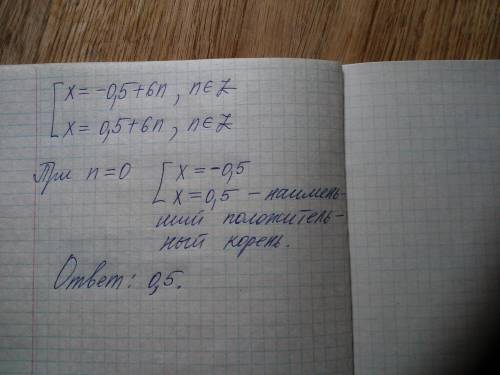 x = -0,5+6n, n∈Z
x = 0,5+6n, n∈Z
При n=0 [x=-0,5
x=0,5 - наимень-
ший положитель-
ный корень.
Ответ: 0,5.